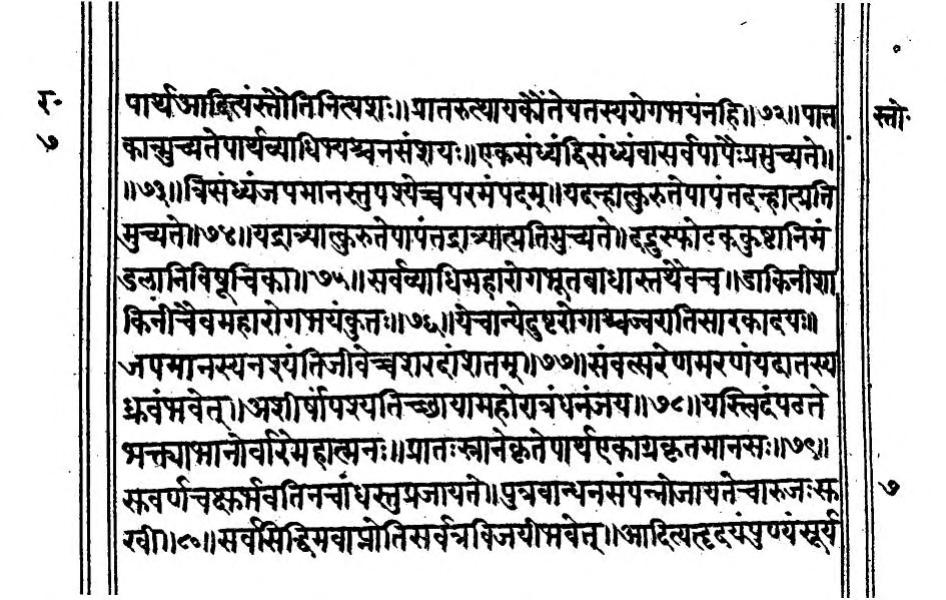 पार्थआदित्यंस्तौतिनित्यशः॥प्रातरुत्थायकौंतेयतस्यरोगभयंनहि॥७२॥पात
कान्मुच्यतेपार्थव्याधिभ्यश्चनसंशयः॥एकसंध्यंद्विसंध्यंवासर्वपापैःप्रमुच्यते॥
॥७३॥त्रिसंध्यंजपमानस्तुपश्येच्चपरमंपदम्॥यदन्हात्कुरुतेपापंतदन्हात्प्रति
मुच्यते॥७४॥यद्रात्र्यात्कुरुतेपापंतद्रात्र्यात्प्रतिमुच्यते॥दद्रुस्फोटककुष्टानिमं
डलानिविषूचिका॥७५॥सर्वव्याधिमहारोगभूतबाधास्तथैवच॥डाकिनीशा
किनीचैवमहारोगभयंकुतः॥७६॥येचान्येदुष्टरोगाश्चज्वरातिसारकादयः॥
जपमानस्यनश्यंतिजीवेच्चशरदांशतम्॥७७॥संवत्सरेणमरणंयदातस्य
ध्रुवंभवेत्॥अशीर्षांपश्यतिच्छायामहोरात्रंधनंजय॥७८॥यस्त्विदंपठते
भक्त्याभानोर्वारेमहात्मनः॥प्रातःस्नानेकृतेपार्थएकाग्रकृतमानसः॥७९॥
सुवर्णचक्षुर्भवतिनचांधस्तुप्रजायते॥पुत्रवान्धनसंपन्नोजायतेचारुजःसु
खी॥८०॥सर्वसिद्धिमवाप्नोतिसर्वत्रविजयीभवेत्॥आदित्यहृदयंपुण्यंसूर्य
र॰
७
स्तो॰
७